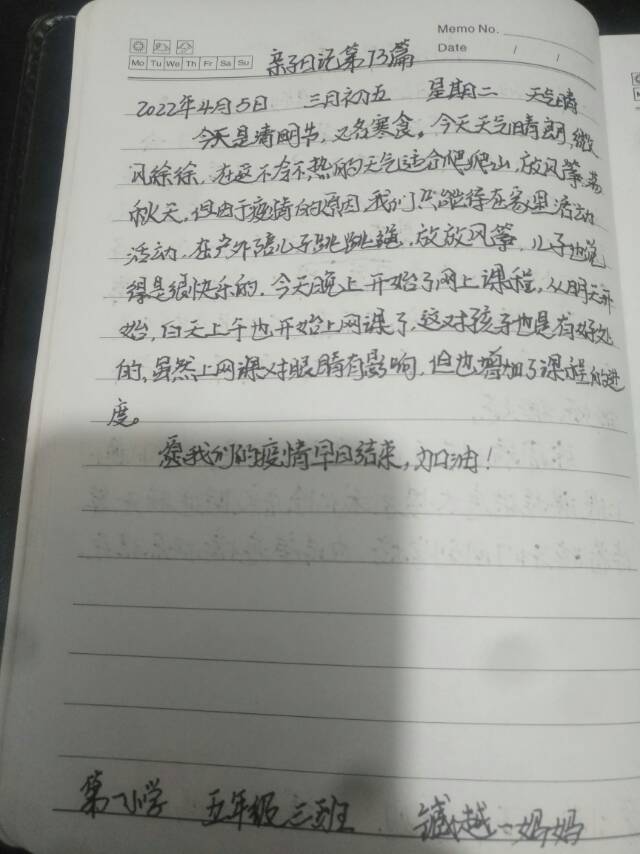 Memo No.
Date / /
Mo Tu We Th Fr Sa Su
亲子日记第73篇
2022年4月5日 三月初五 星期二 天气晴
今天是清明节，又名寒食。今天天气晴朗，微
风徐徐，在这不冷不热的天气适合爬爬山，放风筝，荡
秋天，但由于疫情的原因，我们只能待在家里活动
活动，在户外陪儿子跳跳绳，放放风筝，儿子也觉
得是很快乐的，今天晚上开始了网上课程，从明天开
始，白天上午也开始上网课了，这对孩子也是有好处
的，虽然上网课对眼睛有影响，但也增加了课程的进
度。
愿我们的疫情早日结束，加油！
第八小学 五年级三班 越一妈妈